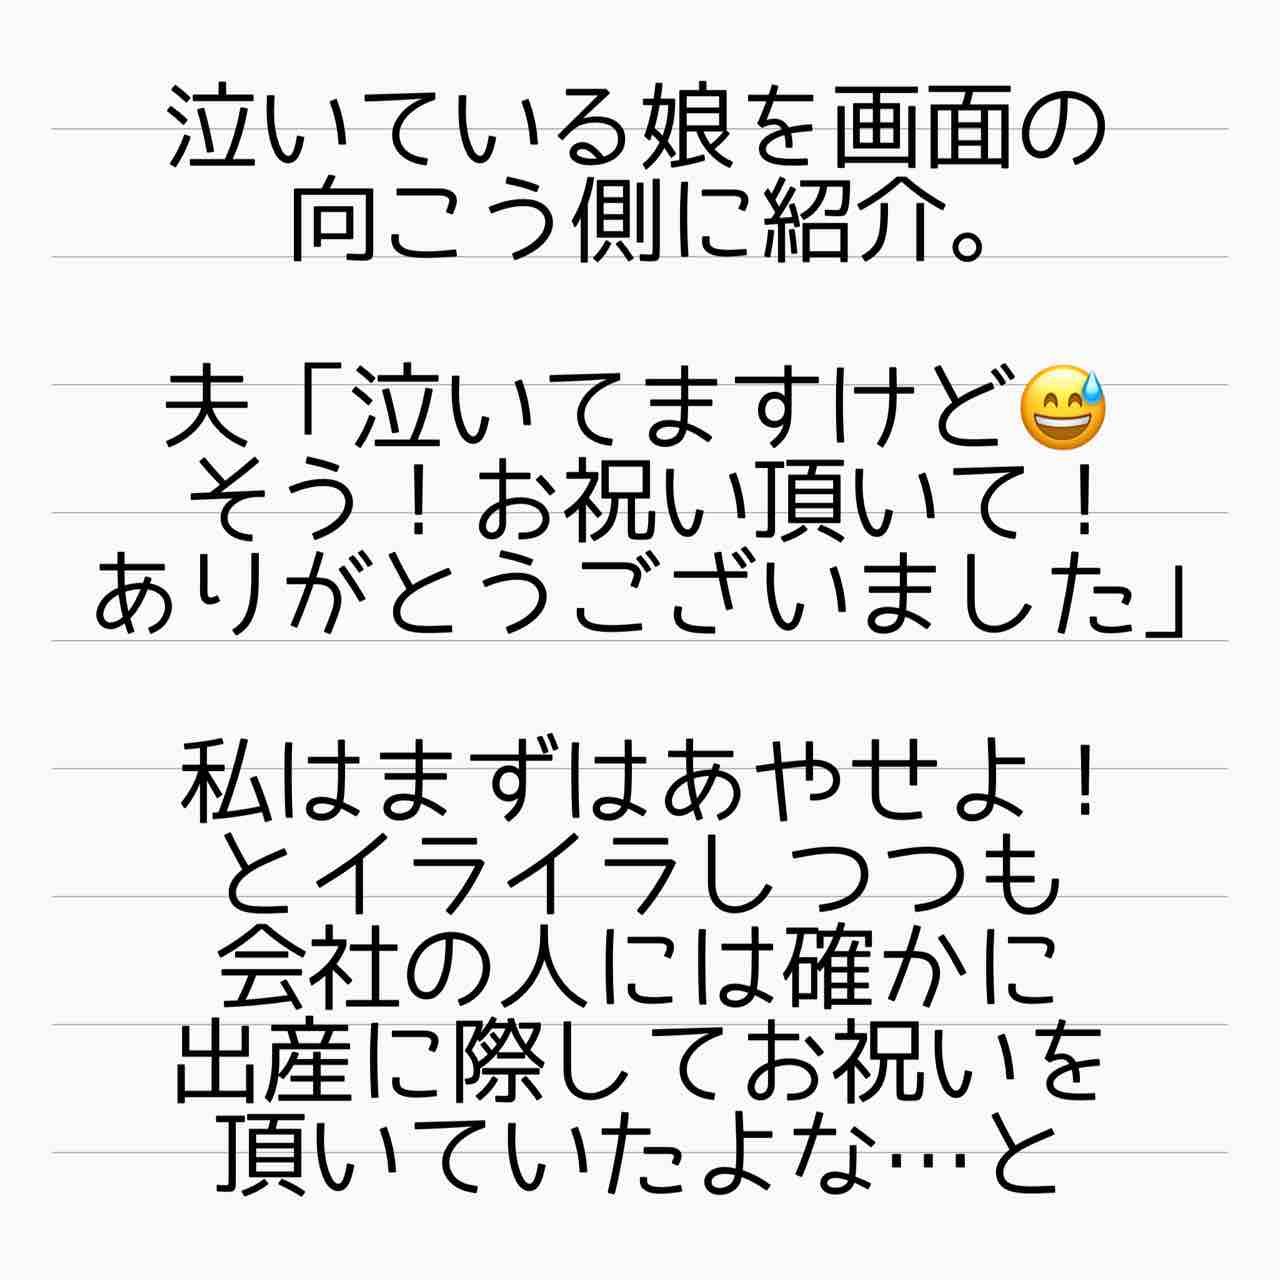 泣いている娘を画面の
向こう側に紹介。
夫「泣いてますけど😅
そう！お祝い頂いて！
ありがとうございました」
私はまずはあやせよ！
とイライラしつつも
会社の人には確かに
出産に際してお祝いを
頂いていたよな…と